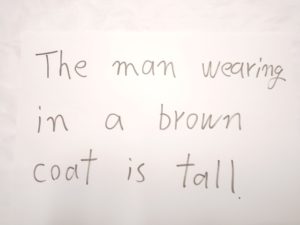 The man wearing
in a brown
coat is tall.